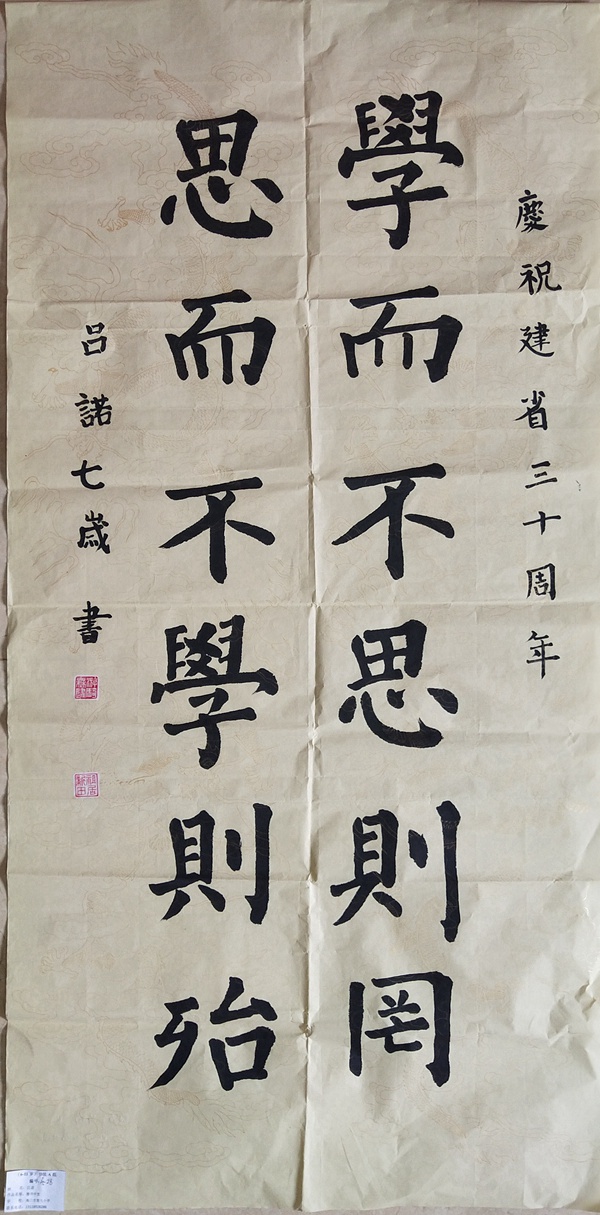 慶祝建省三十周年
學而不思則罔
思而不學則殆
吕諾七歲書